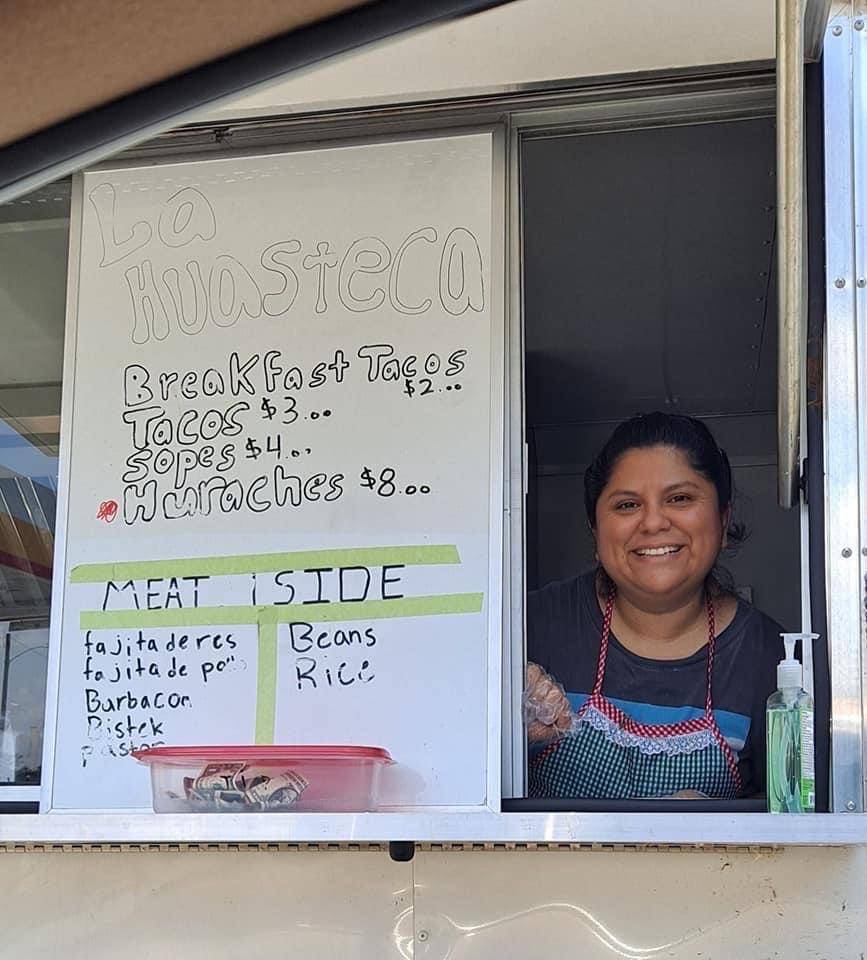 La
Huasteca
Breakfast Tacos
$2.00
Tacos $3.00
Sopes $4.00
Huraches $8.00
MEAT SIDE
fajita de res
fajita de po
Burbacon
Bistek
pastor
Beans
Rice